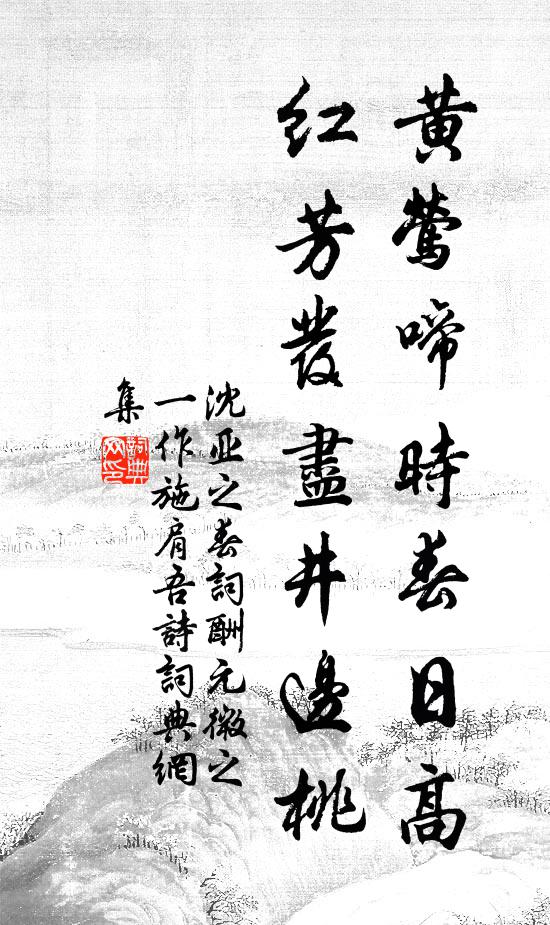 黄鶯啼時春日高
紅芳發盡井邊桃
沈亚之春詞酬元微之
一作施肩吾詩詞典網
集
詞典网印